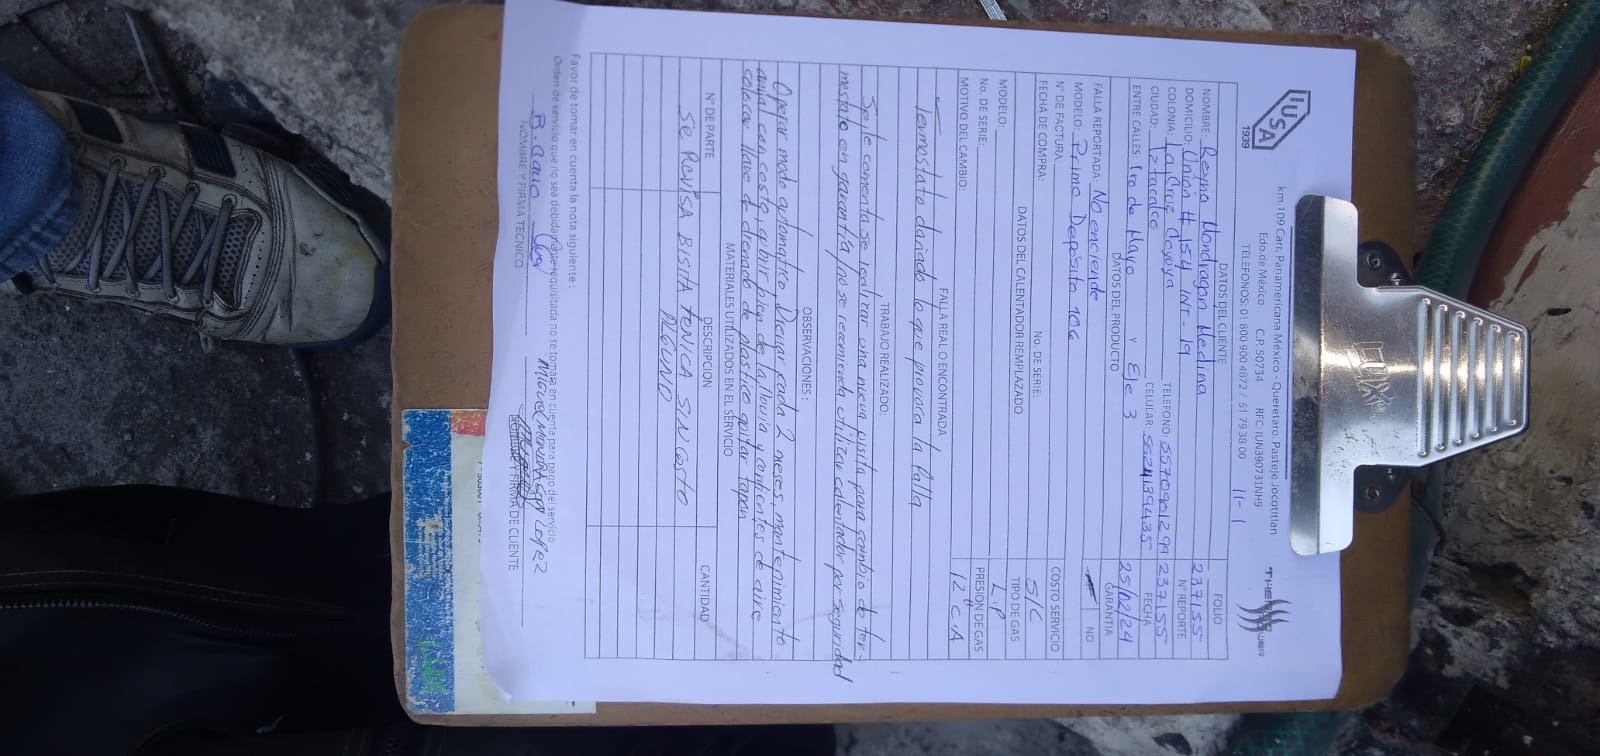 IUSA
1939
km 109 Carr. Panamericana México - Queretaro. Pasteje Jocotitlan
Edo.de México C.P. 50734 RFC: IUN390731NH9
TELEFONOS: 01 800 900 4872 / 51 79 38 00
11-1
DATOS DEL CLIENTE
FOLIO
NOMBRE: Regina Mondragon Medina 237155
DOMICILIO: Union # 154 INT-19 TELEFONO: 5570901299 N° REPORTE
COLONIA: La Cruz Coyuya CELULAR: 5524189435 237155
CIUDAD: Iztacalco FECHA
ENTRE CALLES: 1ro de Mayo Y Eje 3 25/02/24
DATOS DEL PRODUCTO GARANTIA
FALLA REPORTADA: No enciende NO
MODELO: Primo Deposito 10G
N° DE FACTURA: COSTO SERVICIO
FECHA DE COMPRA: No. DE SERIE: S/C
DATOS DEL CALENTADOR REMPLAZADO TIPO DE GAS
MODELO: L.P
No. DE SERIE: PRESION DE GAS
MOTIVO DEL CAMBIO: 12" C.A
FALLA REAL O ENCONTRADA
Termostato dañado lo que provoca la falla
TRABAJO REALIZADO:
Se le comenta se realizar una nueva visita para cambio de ter-
mostato en garantía, no se recomienda utilizar calentador por seguridad
OBSERVACIONES:
Operar modo automatico, Drenar cada 2 meses, mantenimiento
anual con costo, cubrir bien de la lluvia y corrientes de aire
colocar llave de drenado de plastico quitar tapon
MATERIALES UTILIZADOS EN EL SERVICIO
N° DE PARTE DESCRIPCION CANTIDAD
SE REVISA BSITA TENICA SIN COSTO
ALGUNO
Favor de tomar en cuenta la nota siguiente:
Orden de servicio que no sea debidamente requisitada no se tomara en cuenta para pago del servicio
B. Cano Miguel Mondragon Lopez
NOMBRE Y FIRMA TECNICO NOMBRE Y FIRMA DE CLIENTE